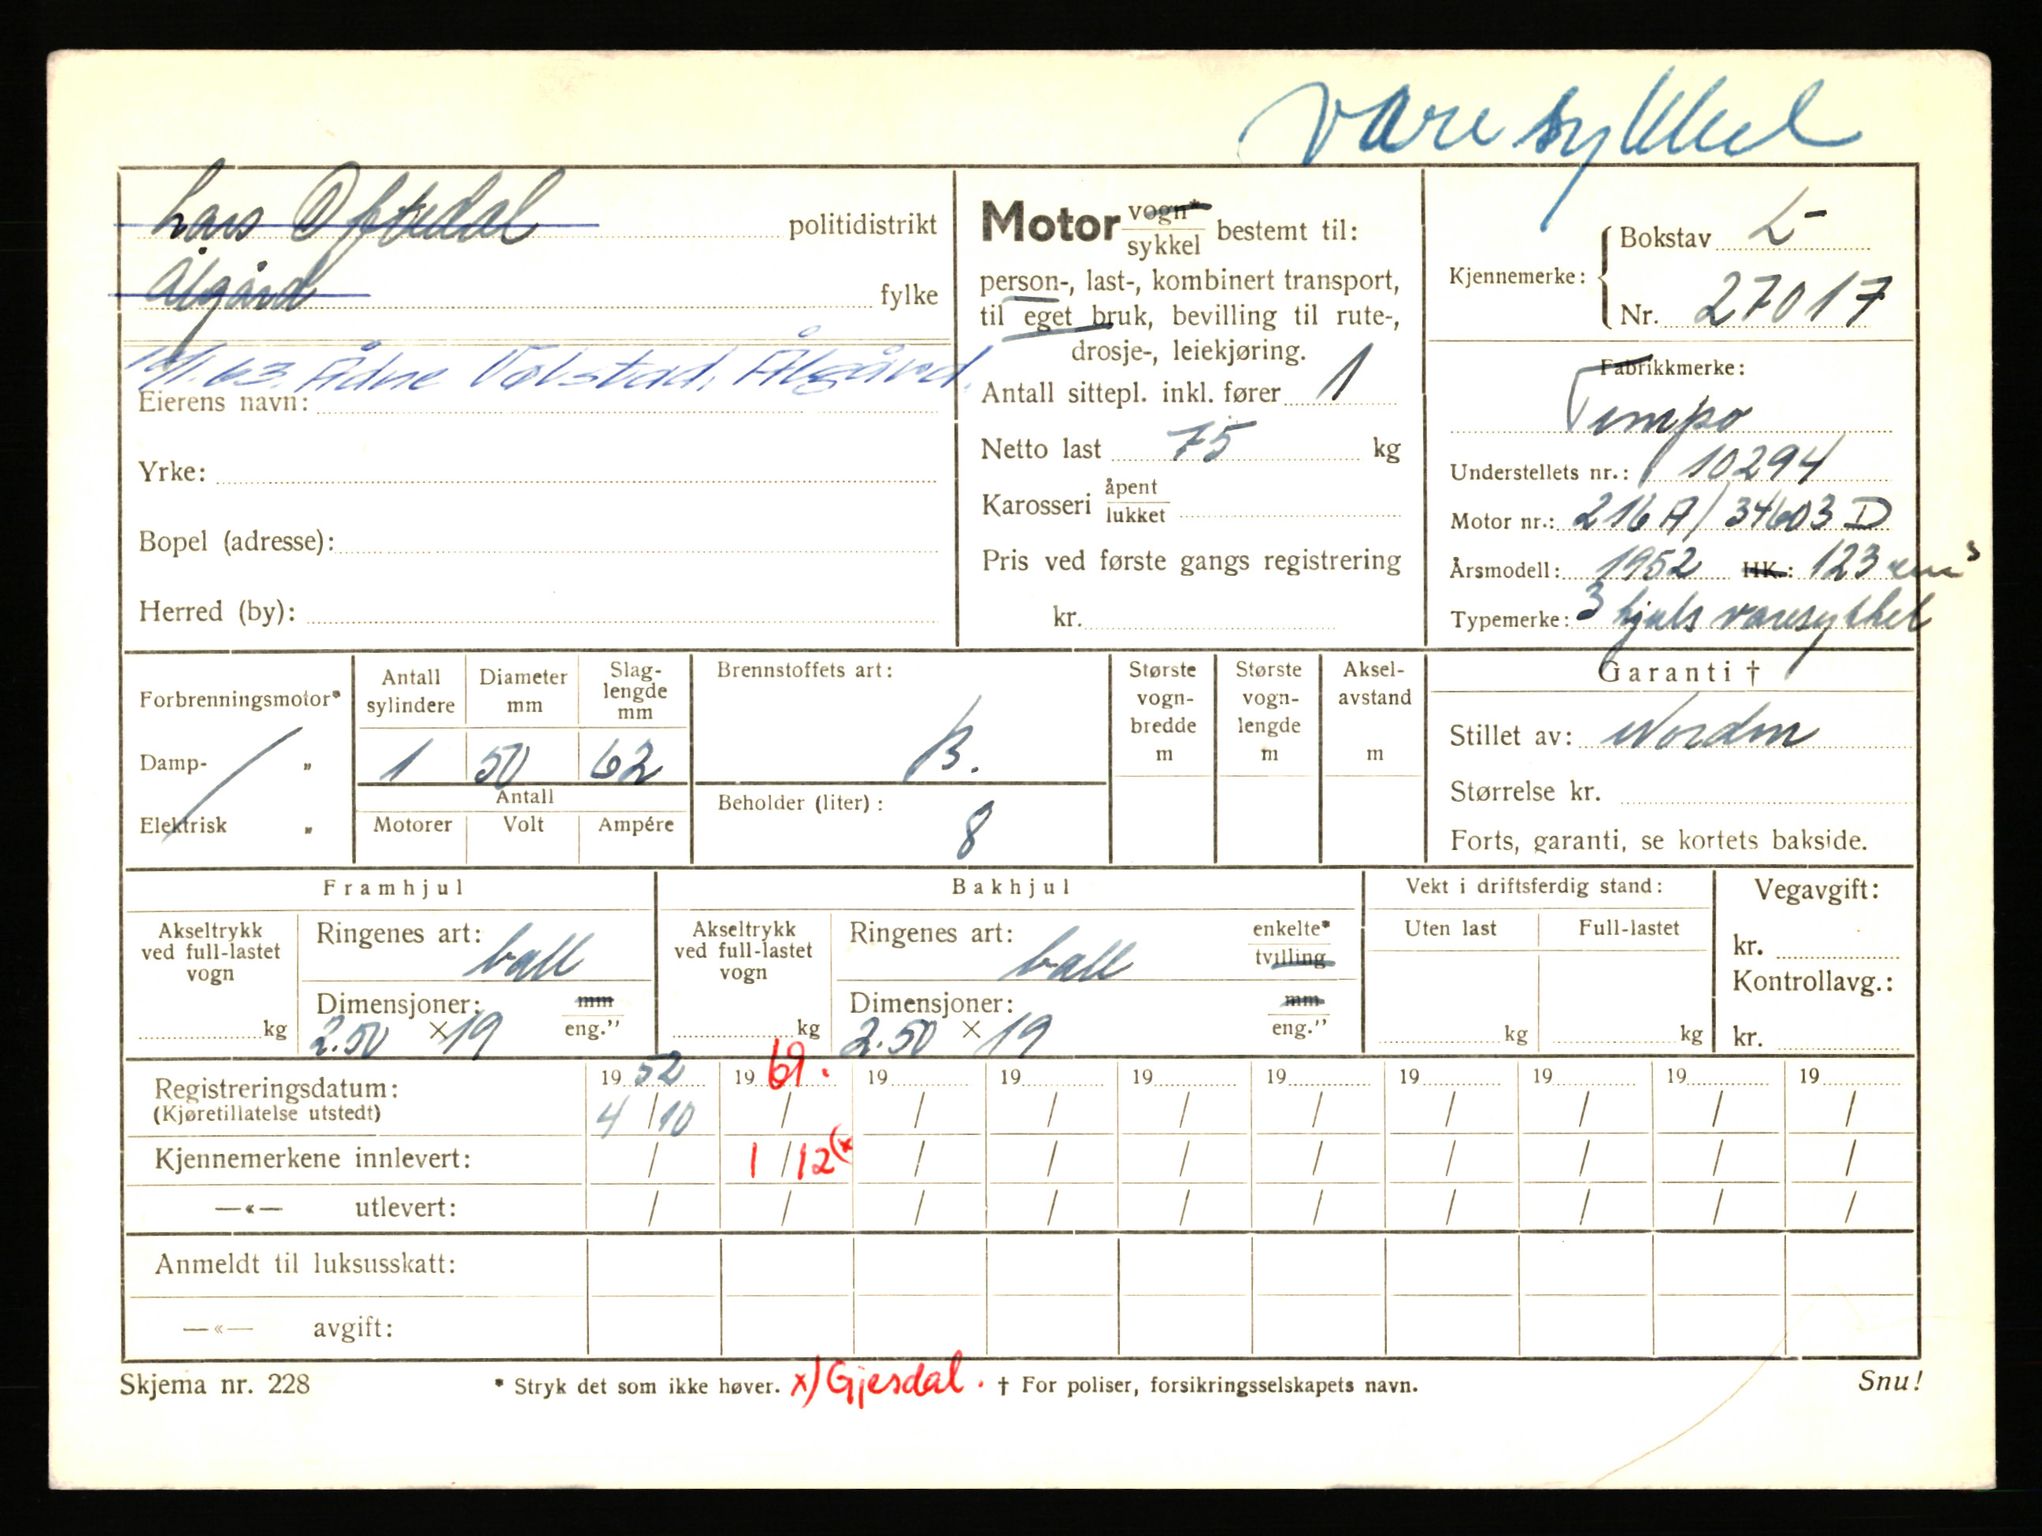 varesykkel
Lars Oftedal politidistrikt
Ålgård fylke
1/1.63. Ådne Vølstad, Ålgård.
Eierens navn:
Yrke:
Bopel (adresse):
Herred (by):
Motor vogn* / sykkel bestemt til:
person-, last-, kombinert transport,
til eget bruk, bevilling til rute-,
drosje-, leiekjøring.
Antall sittepl. inkl. fører 1
Netto last 75 kg
Karosseri åpent / lukket
Pris ved første gangs registrering
kr.
Kjennemerke: Bokstav L-
Nr. 27017
Fabrikkmerke:
Tempo
Understellets nr.: 10294
Motor nr.: 216 A/34603 D
Årsmodell: 1952 HK.: 123 cm³
Typemerke: 3 hjuls varesykkel
Forbrenningsmotor*
Damp- „
Elektrisk „
Antall sylindere 1
Diameter mm 50
Slaglengde mm 62
Antall
Motorer Volt Ampére
Brennstoffets art: B.
Beholder (liter): 8
Største vogn-bredde m
Største vogn-lengde m
Aksel-avstand m
Garanti †
Stillet av: Norden
Størrelse kr.
Forts, garanti, se kortets bakside.
Framhjul
Akseltrykk ved full-lastet vogn kg
Ringenes art: ball
Dimensjoner: mm / eng."
2.50 × 19
Bakhjul
Akseltrykk ved full-lastet vogn kg
Ringenes art: ball enkelte* / tvilling
Dimensjoner: mm / eng."
2.50 × 19
Vekt i driftsferdig stand:
Uten last Full-lastet
kg kg
Vegavgift:
kr.
Kontrollavg.:
kr.
Registreringsdatum: 19 52 19 69. 19 19 19 19 19 19 19 19
(Kjøretillatelse utstedt) 4/10 / / / / / / / / /
Kjennemerkene innlevert: / 1/12 (x / / / / / / / /
—«— utlevert: / / / / / / / / / /
Anmeldt til luksusskatt:
—«— avgift:
Skjema nr. 228 * Stryk det som ikke høver. x) Gjesdal. † For poliser, forsikringsselskapets navn. Snu!